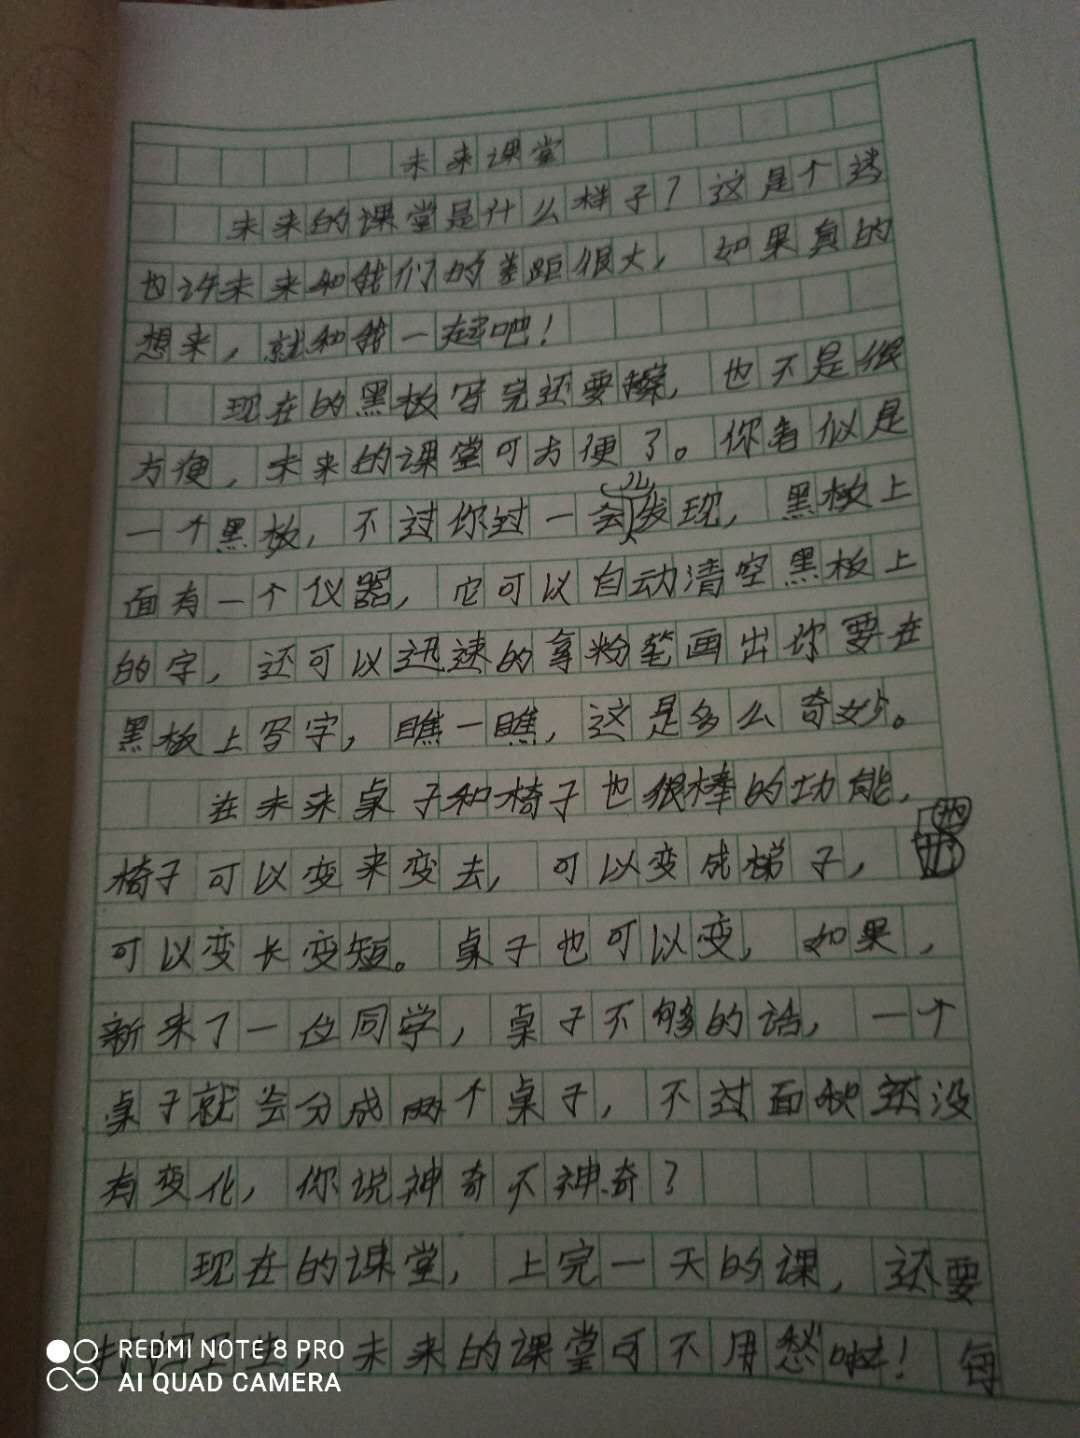 未来课堂
未来的课堂是什么样子？这是个迷
也许未来和我们的差距很大，如果真的
想来，就和我一起吧！
现在的黑板写完还要擦，也不是很
方便，未来的课堂可方便了。你看似是
一个黑板，不过你过一会儿发现，黑板上
面有一个仪器，它可以自动清空黑板上
的字，还可以迅速的拿粉笔画出你要在
黑板上写字，瞧一瞧，这是多么奇妙。
在未来桌子和椅子也很棒的功能，
椅子可以变来变去，可以变成梯子，
可以变长变短。桌子也可以变，如果，
新来了一位同学，桌子不够的话，一个
桌子就会分成两个桌子，不过面积还没
有变化，你说神奇不神奇？
现在的课堂，上完一天的课，还要
未来的课堂可不用愁啦！每
REDMI NOTE 8 PRO
AI QUAD CAMERA